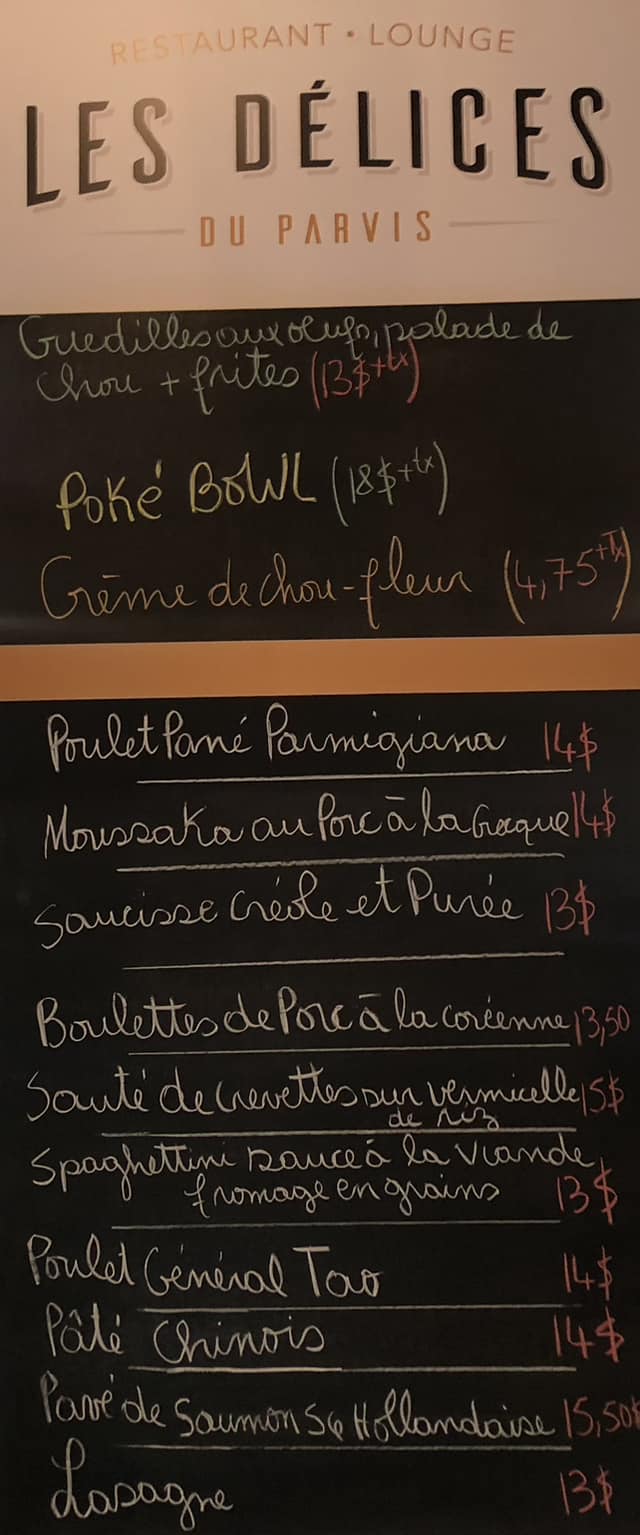 RESTAURANT • LOUNGE
LES DÉLICES
DU PARVIS
Guedilles aux oeufs, salade de
chou + frites (13$+tx)
Poké BOWL (18$+tx)
Crème de chou-fleur (4,75+Tx)
Poulet Pané Parmigiana 14$
Moussaka au Porc à la Grecque 14$
Saucisse Créole et Purée 13$
Boulettes de Porc à la coréenne 13,50
Sauté de crevettes sur vermicelle 15$
de riz
Spaghettini sauce à la viande
fromage en grains 13$
Poulet Général Tao 14$
Pâté Chinois 14$
Pavé de Saumon Sc Hollandaise 15,50$
Lasagne 13$